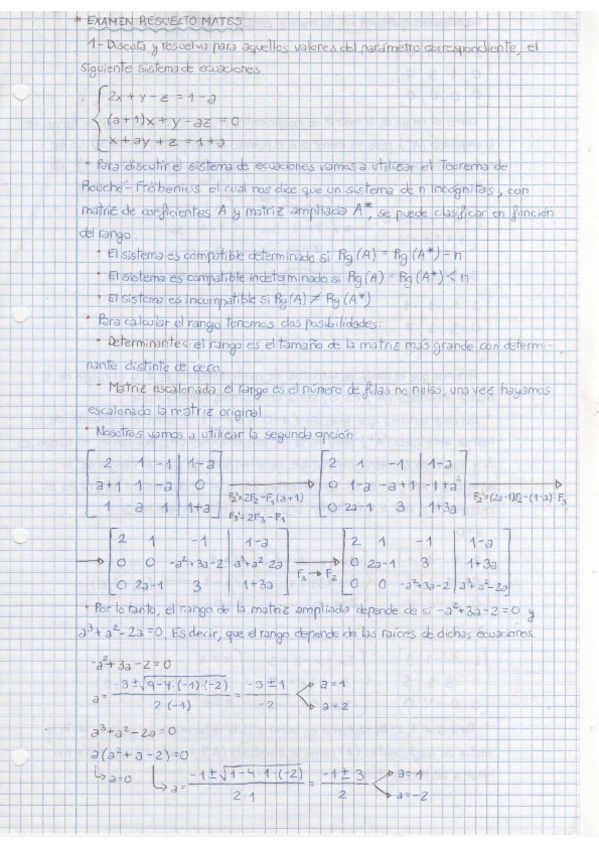 * EXAMEN RESUELTO MATES
1- Discuta y resuelva para aquellos valores del parámetro correspondiente, el
siguiente sistema de ecuaciones
2x + y - z = 1 - a
(a+1)x + y - az = 0
x + ay + z = 1 + a
• Para discutir el sistema de ecuaciones vamos a utilizar el Teorema de
Rouché - Fröbenius el cual nos dice que un sistema de n incógnitas, con
matriz de coeficientes A y matriz ampliada A*, se puede clasificar en función
del rango.
• El sistema es compatible determinado si Rg (A) = Rg (A*) = n
• El sistema es compatible indeterminado si Rg (A) = Rg (A*) < n
• El sistema es incompatible si Rg (A) ≠ Rg (A*)
• Para calcular el rango tenemos dos posibilidades:
• Determinantes: el rango es el tamaño de la matriz más grande con determi-
nante distinto de cero.
• Matriz escalonada: el rango es el número de filas no nulas, una vez hayamos
escalonado la matriz original
• Nosotros vamos a utilizar la segunda opción
2 1 -1 | 1-a 2 1 -1 | 1-a
a+1 1 -a | 0 F₂'=2F₂-F₁(a+1) 0 1-a -a+1 | -1+a² F₂'=(2a-1)F₂-(1-a) F₃
1 a 1 | 1+a F₃'=2F₃-F₁ 0 2a-1 3 | 1+3a
2 1 -1 | 1-a 2 1 -1 | 1-a
0 0 -a²+3a-2 | a³+a²-2a F₃ → F₂ 0 2a-1 3 | 1+3a
0 2a-1 3 | 1+3a 0 0 -a²+3a-2 | a³+a²-2a
• Por lo tanto, el rango de la matriz ampliada depende de si -a²+3a-2=0 y
a³+a²-2a=0. Es decir, que el rango depende de las raíces de dichas ecuaciones.
-a²+3a-2=0
a = -3±√9-4·(-1)·(-2) / 2·(-1) = -3±1 / -2 → a=1
→ a=2
a³+a²-2a=0
a(a²+a-2)=0
↳ a=0 ↳ a = -1±√1-4·1·(-2) / 2·1 = -1±3 / 2 → a=1
→ a=-2